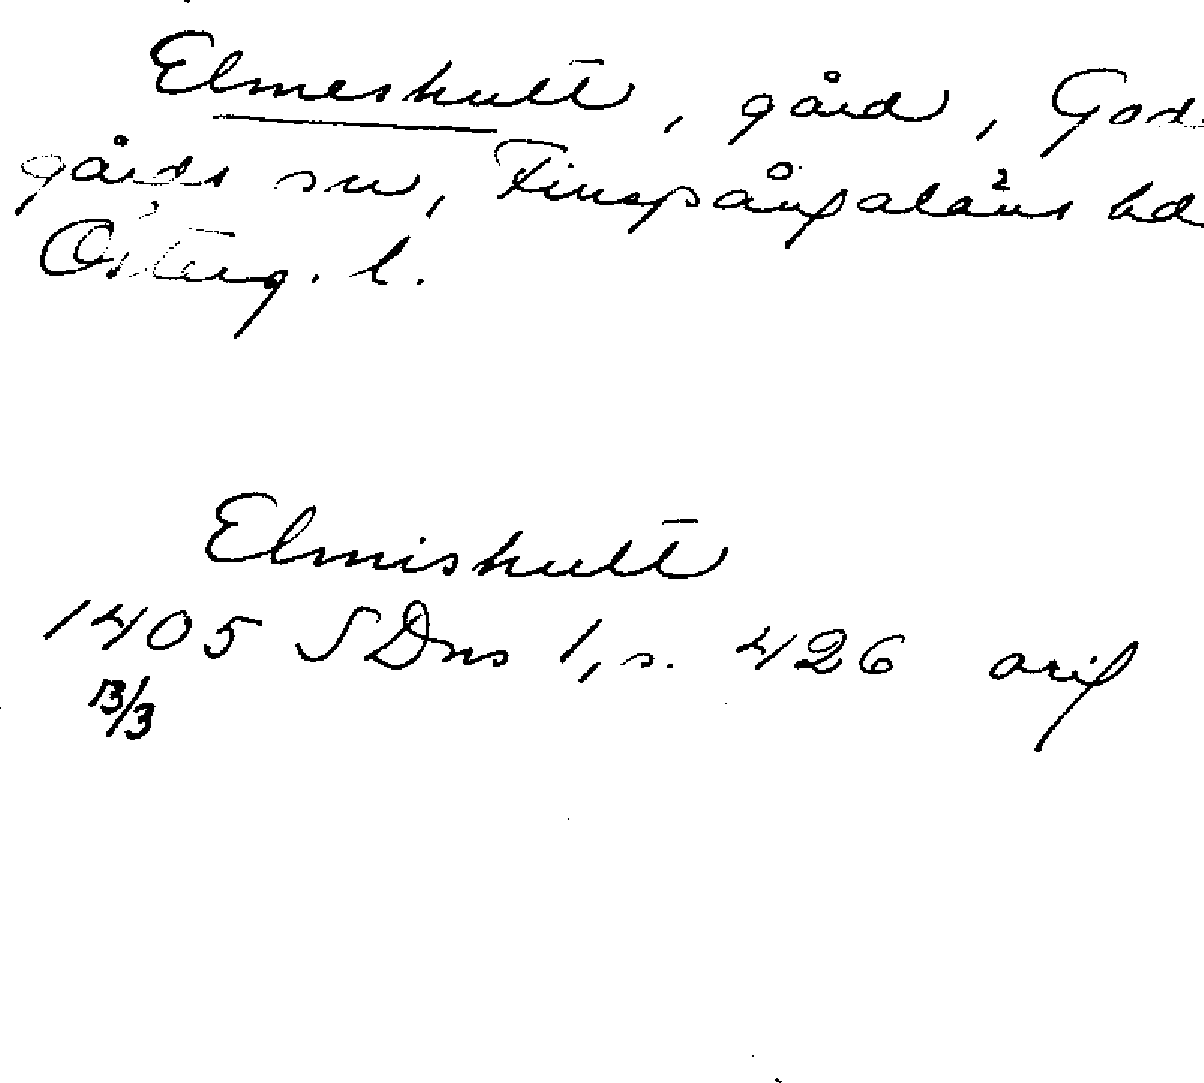 Elmeshult, gård, God-
gårds sn, Finspångaläns hd
Österg. l.
Elmishult
1405 SDns 1, s. 426 orig
13/3